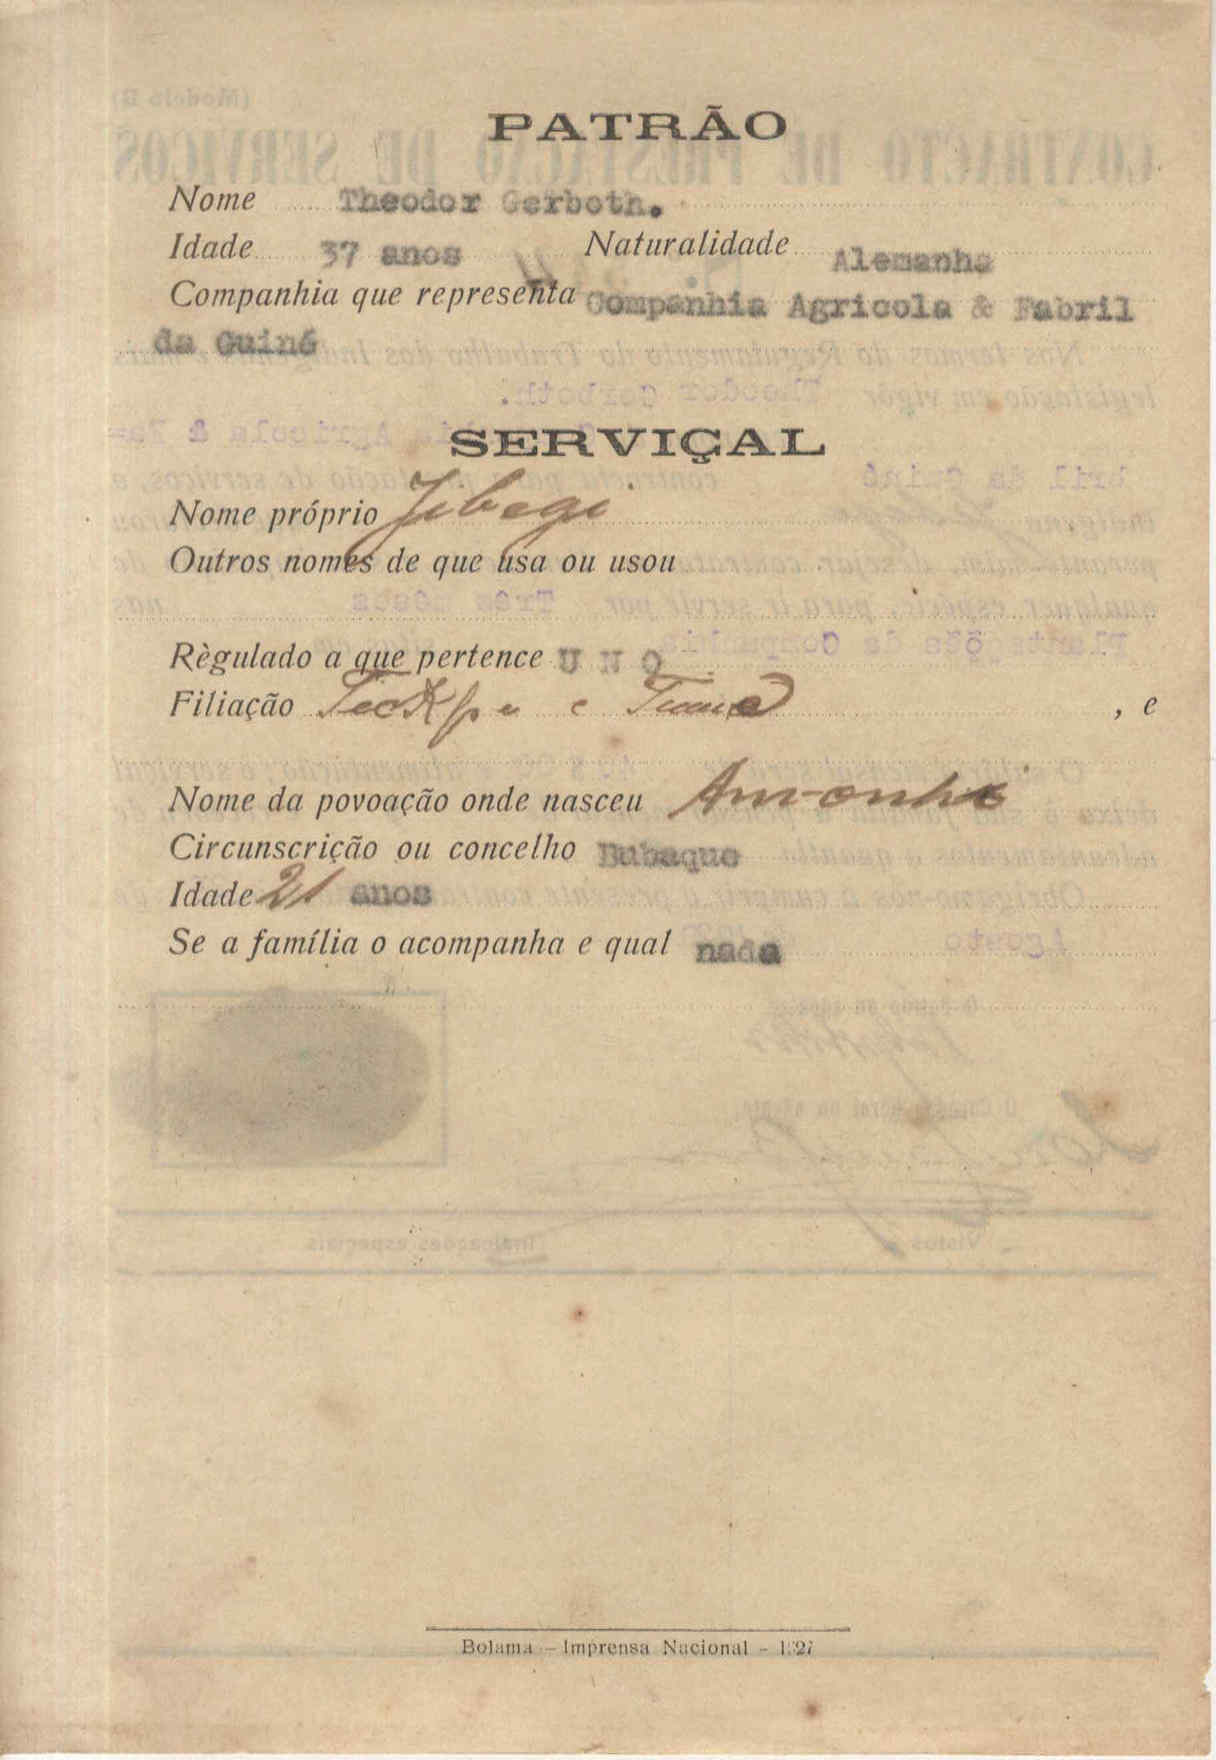 PATRÃO
Nome Theodor Gerboth.
Idade 37 anos Naturalidade Alemanha
Companhia que representa Companhia Agricola & Fabril
da Guiné
SERVIÇAL
Nome próprio
Outros nomes de que usa ou usou
Règulado a que pertence U N O
Filiação e , e
Nome da povoação onde nasceu
Circunscrição ou concelho Bubaque
Idade 21 anos
Se a família o acompanha e qual nada
Bolama — Imprensa Nacional — 1927